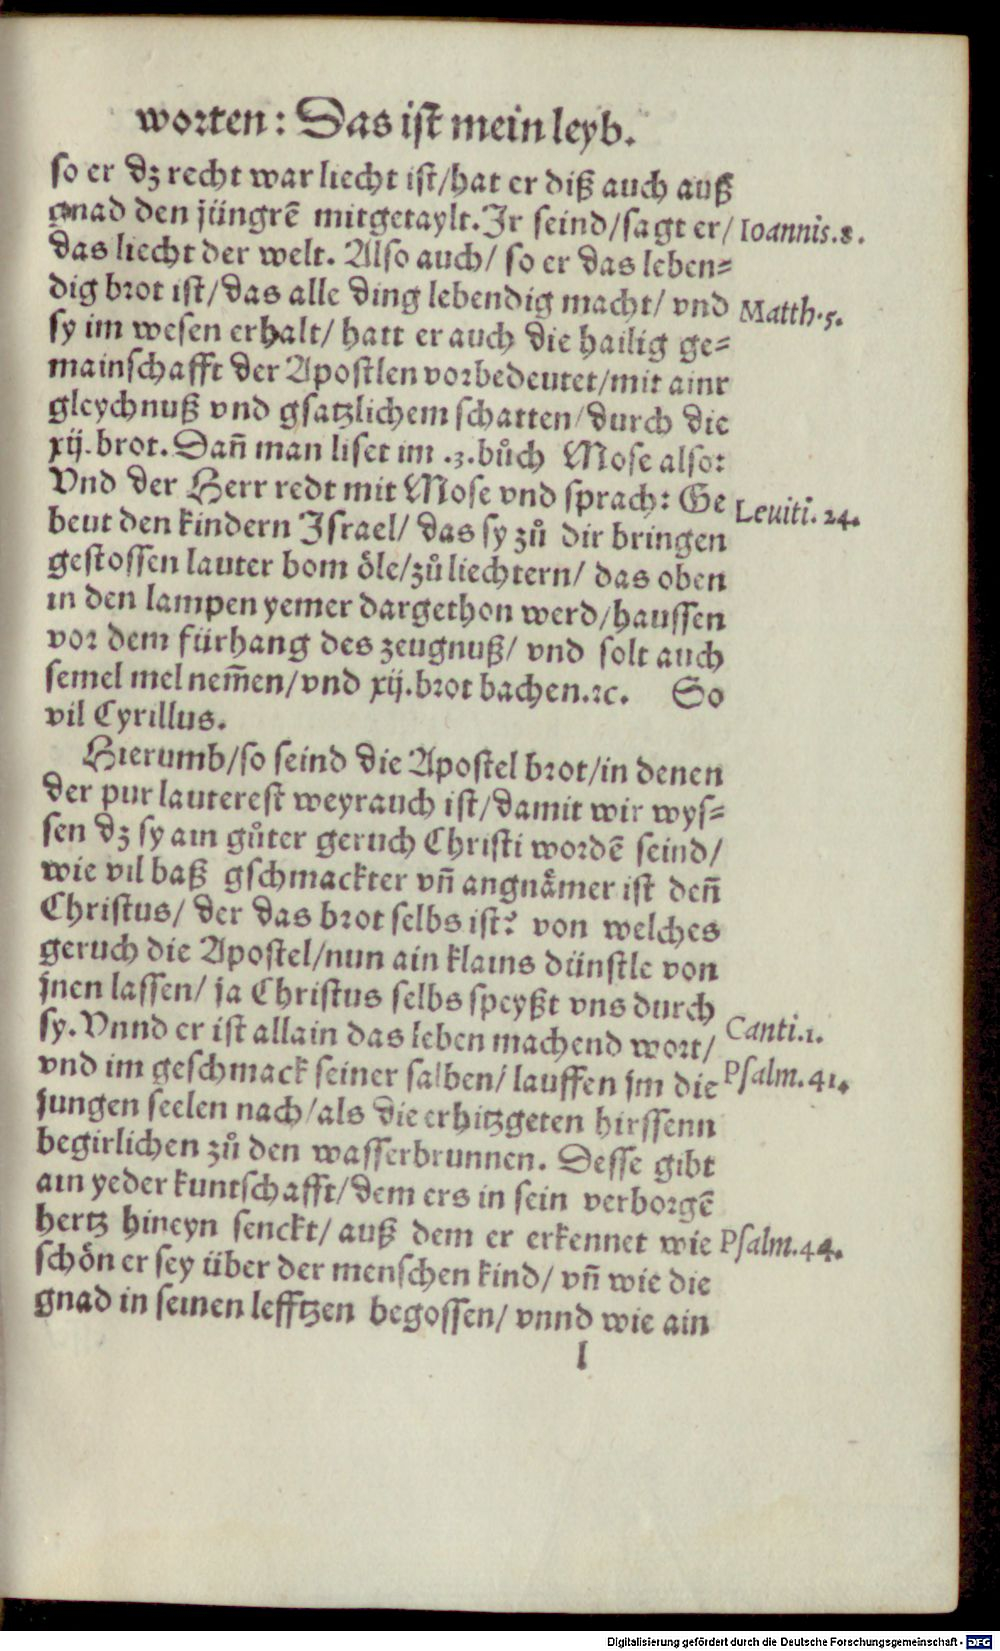 worten: Das ist mein leyb.
so er dz recht war liecht ist/hat er diß auch auß
gnad den jüngrē mitgetaylt. Ir seind/sagt er/ Ioannis.8.
das liecht der welt. Also auch/ so er das leben=
dig brot ist/das alle ding lebendig macht/ vnd Matth.5.
sy im wesen erhalt/ hatt er auch die hailig ge=
mainschafft der Apostlen vorbedeutet/mit ainr
gleychnuß vnd gsatzlichem schatten/durch die
xij.brot. Dañ man liset im .3.bůch Mose also:
Vnd der Herr redt mit Mose vnd sprach: Ge Leuiti.24.
beut den kindern Israel/ das sy zů dir bringen
gestossen lauter bom öle/zů liechtern/ das oben
in den lampen yemer dargethon werd/haussen
vor dem fürhang des zeugnuß/ vnd solt auch
semel mel nem̄en/vnd xij.brot bachen.ꝛc. So
vil Cyrillus.
Hierumb/so seind die Apostel brot/in denen
der pur lauterest weyrauch ist/damit wir wys=
sen dz sy ain gůter geruch Christi wordē seind/
wie vil baß gschmackter vñ angnämer ist deñ
Christus/ der das brot selbs ist? von welches
geruch die Apostel/nun ain klains dünstle von
jnen lassen/ ja Christus selbs speyßt vns durch
sy. Vnnd er ist allain das leben machend wort/ Canti.1.
vnd im geschmack seiner salben/ lauffen jm die Psalm.41.
jungen seelen nach/als die erhitzgeten hirssenn
begirlichen zů den wasserbrunnen. Desse gibt
ain yeder kuntschafft/dem ers in sein verborgē
hertz hineyn senckt/ auß dem er erkennet wie Psalm.44.
schön er sey über der menschen kind/ vñ wie die
gnad in seinen lefftzen begossen/ vnnd wie ain
l
Digitalisierung gefördert durch die Deutsche Forschungsgemeinschaft - DFG